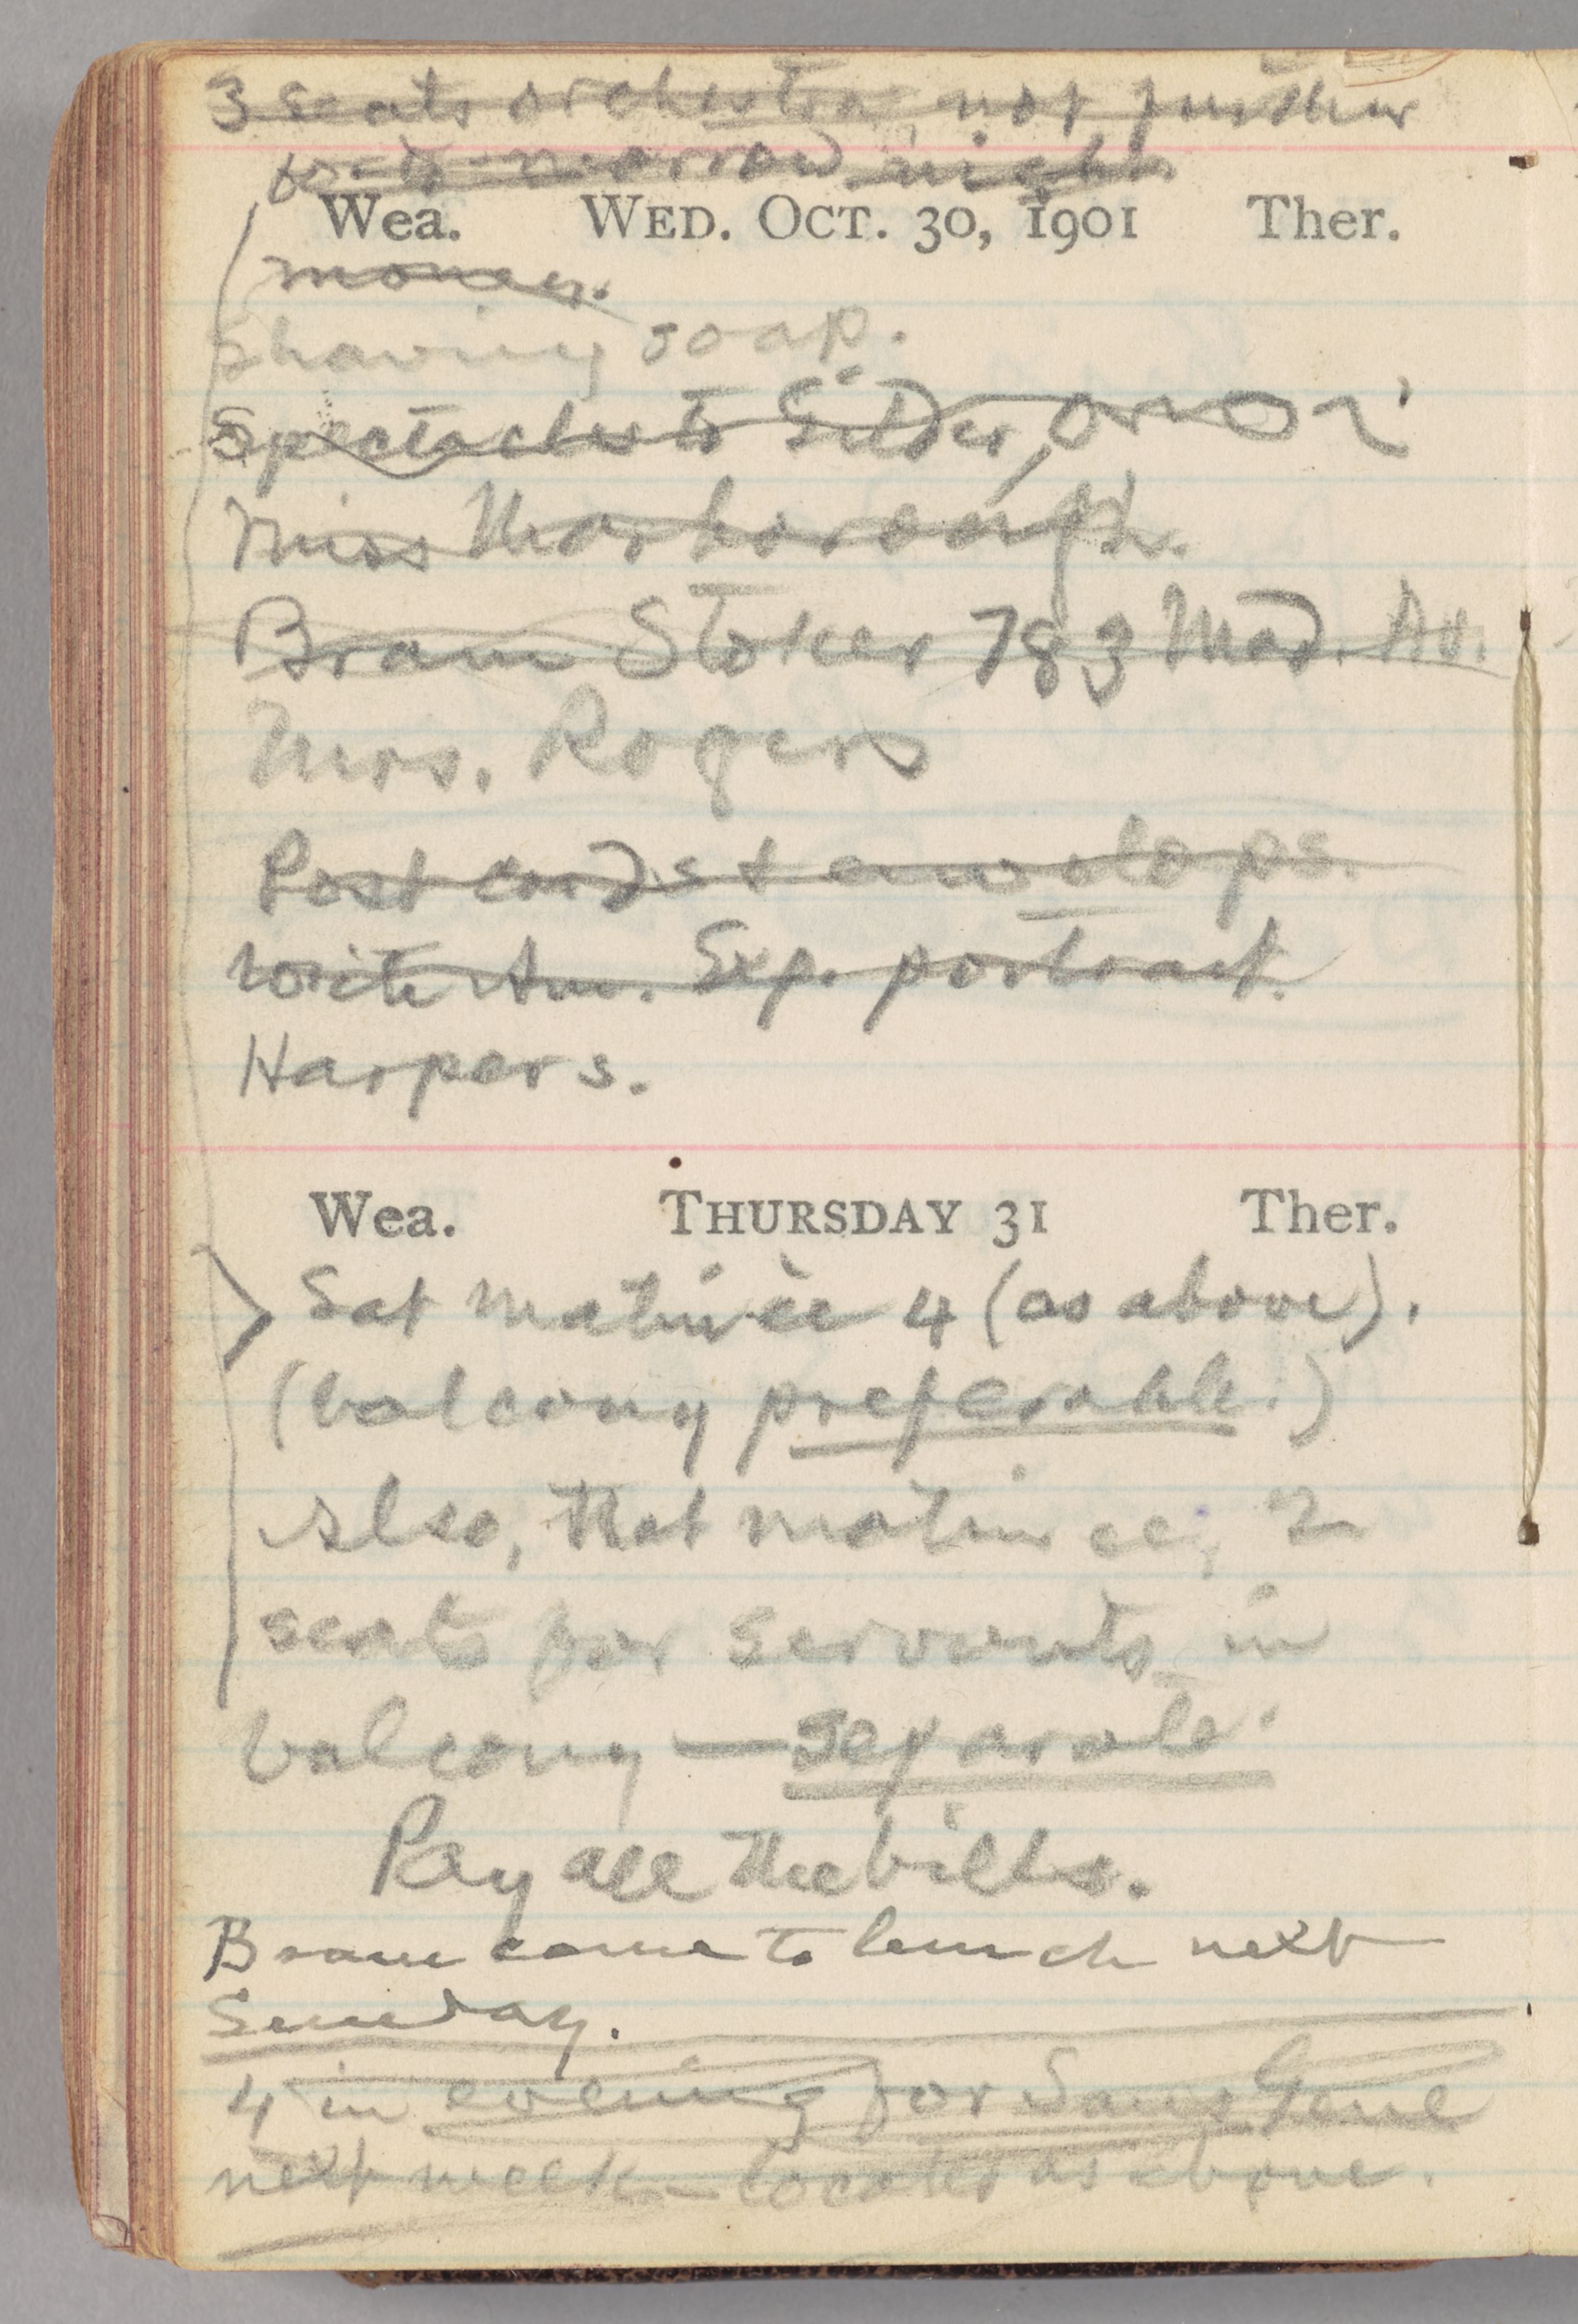 3 seats orchestra not further
for to-morrow night
Wea. WED. OCT. 30, 1901 Ther.
money.
Shaving soap.
Spectacles to Gilder,
Miss Marborough.
Bram Stoker 783 Mad. Av.
Mrs. Rogers
Post cards & envelops.
Write Am. Exp. portrait.
Harpers.
Wea. THURSDAY 31 Ther.
Sat matinée 4 (as above).
(balcony preferable.)
Also, that matinee, 2
seats for servants in
balcony—separate.
Pay all the bills.
Bram come to lunch next
Sunday.
4 in evening for Sans Gene
next week—located as above.